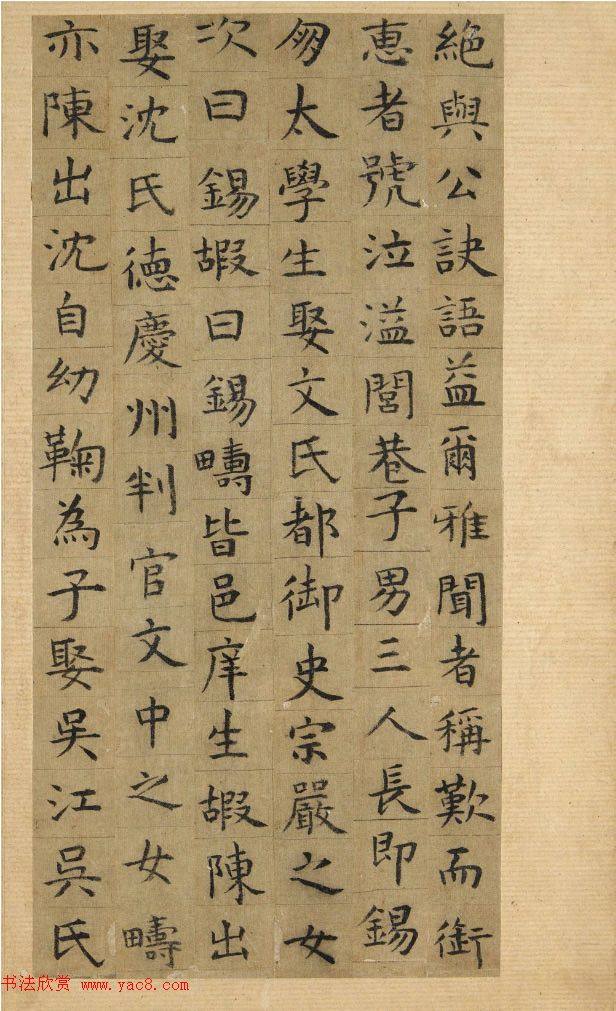 絕與公訣語益爾雅聞者稱歎而銜
恵者號泣溢閭巷子男三人長即錫
太學生娶文氏都御史宗嚴之女
次曰錫嘏曰錫疇皆邑庠生嘏陳出
娶沈氏德慶州判官文中之女疇
亦陳出沈自幼鞠為子娶吴江吳氏
书法欣赏 www.yac8.com